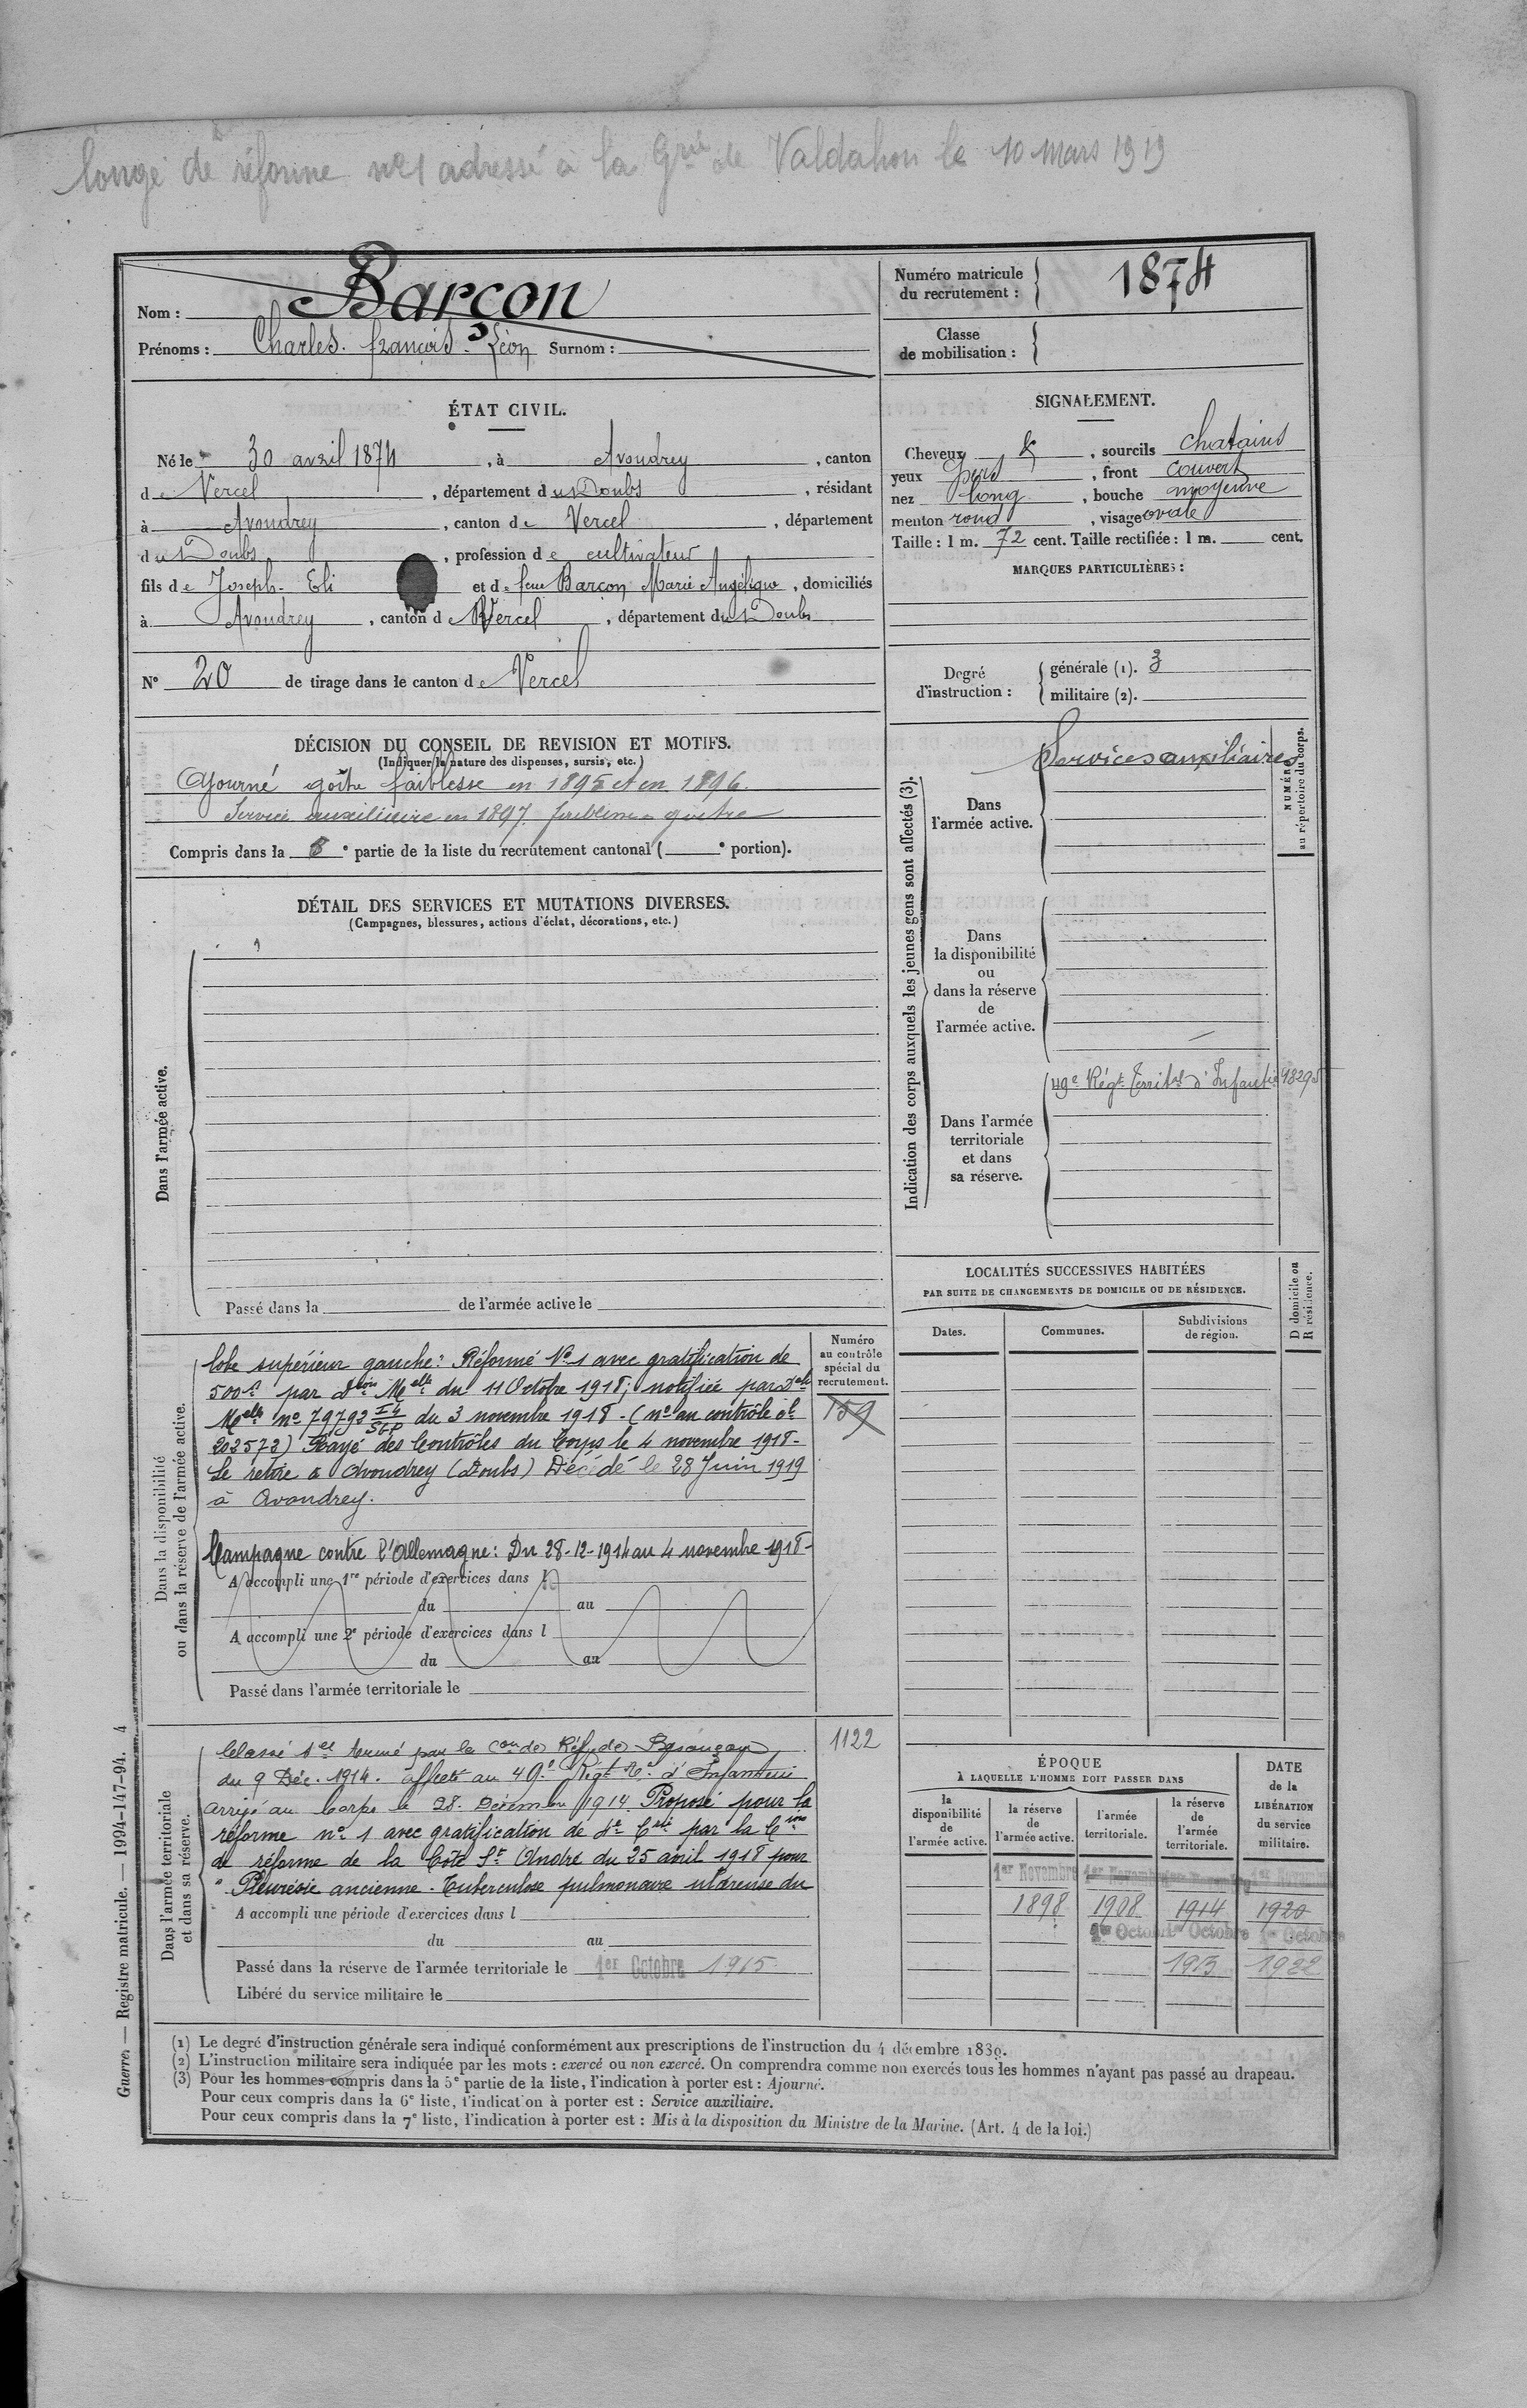 Congé de réforme n°1 adressé à la Grie de Valdahon le 10 mars 1919
Nom : Barçon
Prénoms : Charles. françois. Léon Surnom :
Numéro matricule du recrutement : 1874
Classe de mobilisation :
ÉTAT CIVIL.
Né le 30 avril 1874, à Avoudrey, canton
de Vercel, département du Doubs, résidant
à Avoudrey, canton de Vercel, département
du Doubs, profession de cultivateur
fils de Joseph-Eli et de feue Barçon Marie Angélique, domiciliés
à Avoudrey, canton de Vercel, département du Doubs
N° 20 de tirage dans le canton de Vercel
SIGNALEMENT.
Cheveux &, sourcils chatains
yeux pers, front couvert
nez long, bouche moyenne
menton rond, visage ovale
Taille : 1 m. 72 cent. Taille rectifiée : 1 m. cent.
MARQUES PARTICULIÈRES :
Degré d'instruction : générale (1). 3
militaire (2).
DÉCISION DU CONSEIL DE REVISION ET MOTIFS.
(Indiquer la nature des dispenses, sursis, etc.)
Ajourné goître faiblesse en 1895 et en 1896.
Service auxiliaire en 1897. faiblesse goitre
Compris dans la 6e partie de la liste du recrutement cantonal ( e portion).
DÉTAIL DES SERVICES ET MUTATIONS DIVERSES.
(Campagnes, blessures, actions d'éclat, décorations, etc.)
Dans l'armée active.
Passé dans la de l'armée active le
Indication des corps auxquels les jeunes gens sont affectés (3).
NUMÉRO au répertoire du corps.
Dans l'armée active.
Services auxiliaires
Dans la disponibilité ou dans la réserve de l'armée active.
Dans l'armée territoriale et dans sa réserve.
49e Régt Territal d'Infantie 18295
Dans la disponibilité ou dans la réserve de l'armée active.
Numéro au contrôle spécial du recrutement.
159
lobe supérieur gauche : Réformé N°1 avec gratification de
500f par Dcion Melle du 11 Octobre 1918 ; notifiée par Dch
Melle n° 79793 I4/SGP du 3 novembre 1918. (n° au contrôle
203573) Rayé des Contrôles du Corps le 4 novembre 1918.
Se retire à Avoudrey (Doubs) Décédé le 28 Juin 1919
à Avoudrey.
Campagne contre l'Allemagne : Du 28-12-1914 au 4 novembre 1918-
A accompli une 1re période d'exercices dans l
du au
A accompli une 2e période d'exercices dans l
du au
Passé dans l'armée territoriale le
Dans l'armée territoriale et dans sa réserve.
1122
Classé Sce Armé par la Con de Réf. de Besançon
du 9 Déc. 1914. affecté au 49e Régt Tal d'Infanterie
arrivé au Corps le 28. Décembre 1914. Proposé pour la
réforme n° 1 avec gratification de par la Cion
de réforme de la Côte St André du 25 avril 1918 pour
"Pleurésie ancienne. Tuberculose pulmonaire ulcéreuse du
A accompli une période d'exercices dans l
du au
Passé dans la réserve de l'armée territoriale le 1er Octobre 1915
Libéré du service militaire le
LOCALITÉS SUCCESSIVES HABITÉES
PAR SUITE DE CHANGEMENTS DE DOMICILE OU DE RÉSIDENCE.
Dates. Communes. Subdivisions de région.
D domicile ou R résidence.
ÉPOQUE
À LAQUELLE L'HOMME DOIT PASSER DANS
la disponibilité de l'armée active. la réserve de l'armée active. l'armée territoriale. la réserve de l'armée territoriale.
DATE de la LIBÉRATION du service militaire.
1er Novembre 1er Novembre 1er Novembre 1er Novembre
1898 1908 1914 1920
1er Octobre 1er Octobre 1er Octobre
1915 1922
(1) Le degré d'instruction générale sera indiqué conformément aux prescriptions de l'instruction du 4 décembre 1889.
(2) L'instruction militaire sera indiquée par les mots : exercé ou non exercé. On comprendra comme non exercés tous les hommes n'ayant pas passé au drapeau.
(3) Pour les hommes compris dans la 5e partie de la liste, l'indication à porter est : Ajourné.
Pour ceux compris dans la 6e liste, l'indication à porter est : Service auxiliaire.
Pour ceux compris dans la 7e liste, l'indication à porter est : Mis à la disposition du Ministre de la Marine. (Art. 4 de la loi.)
Guerre. — Registre matricule. — 1994-147-94. 4